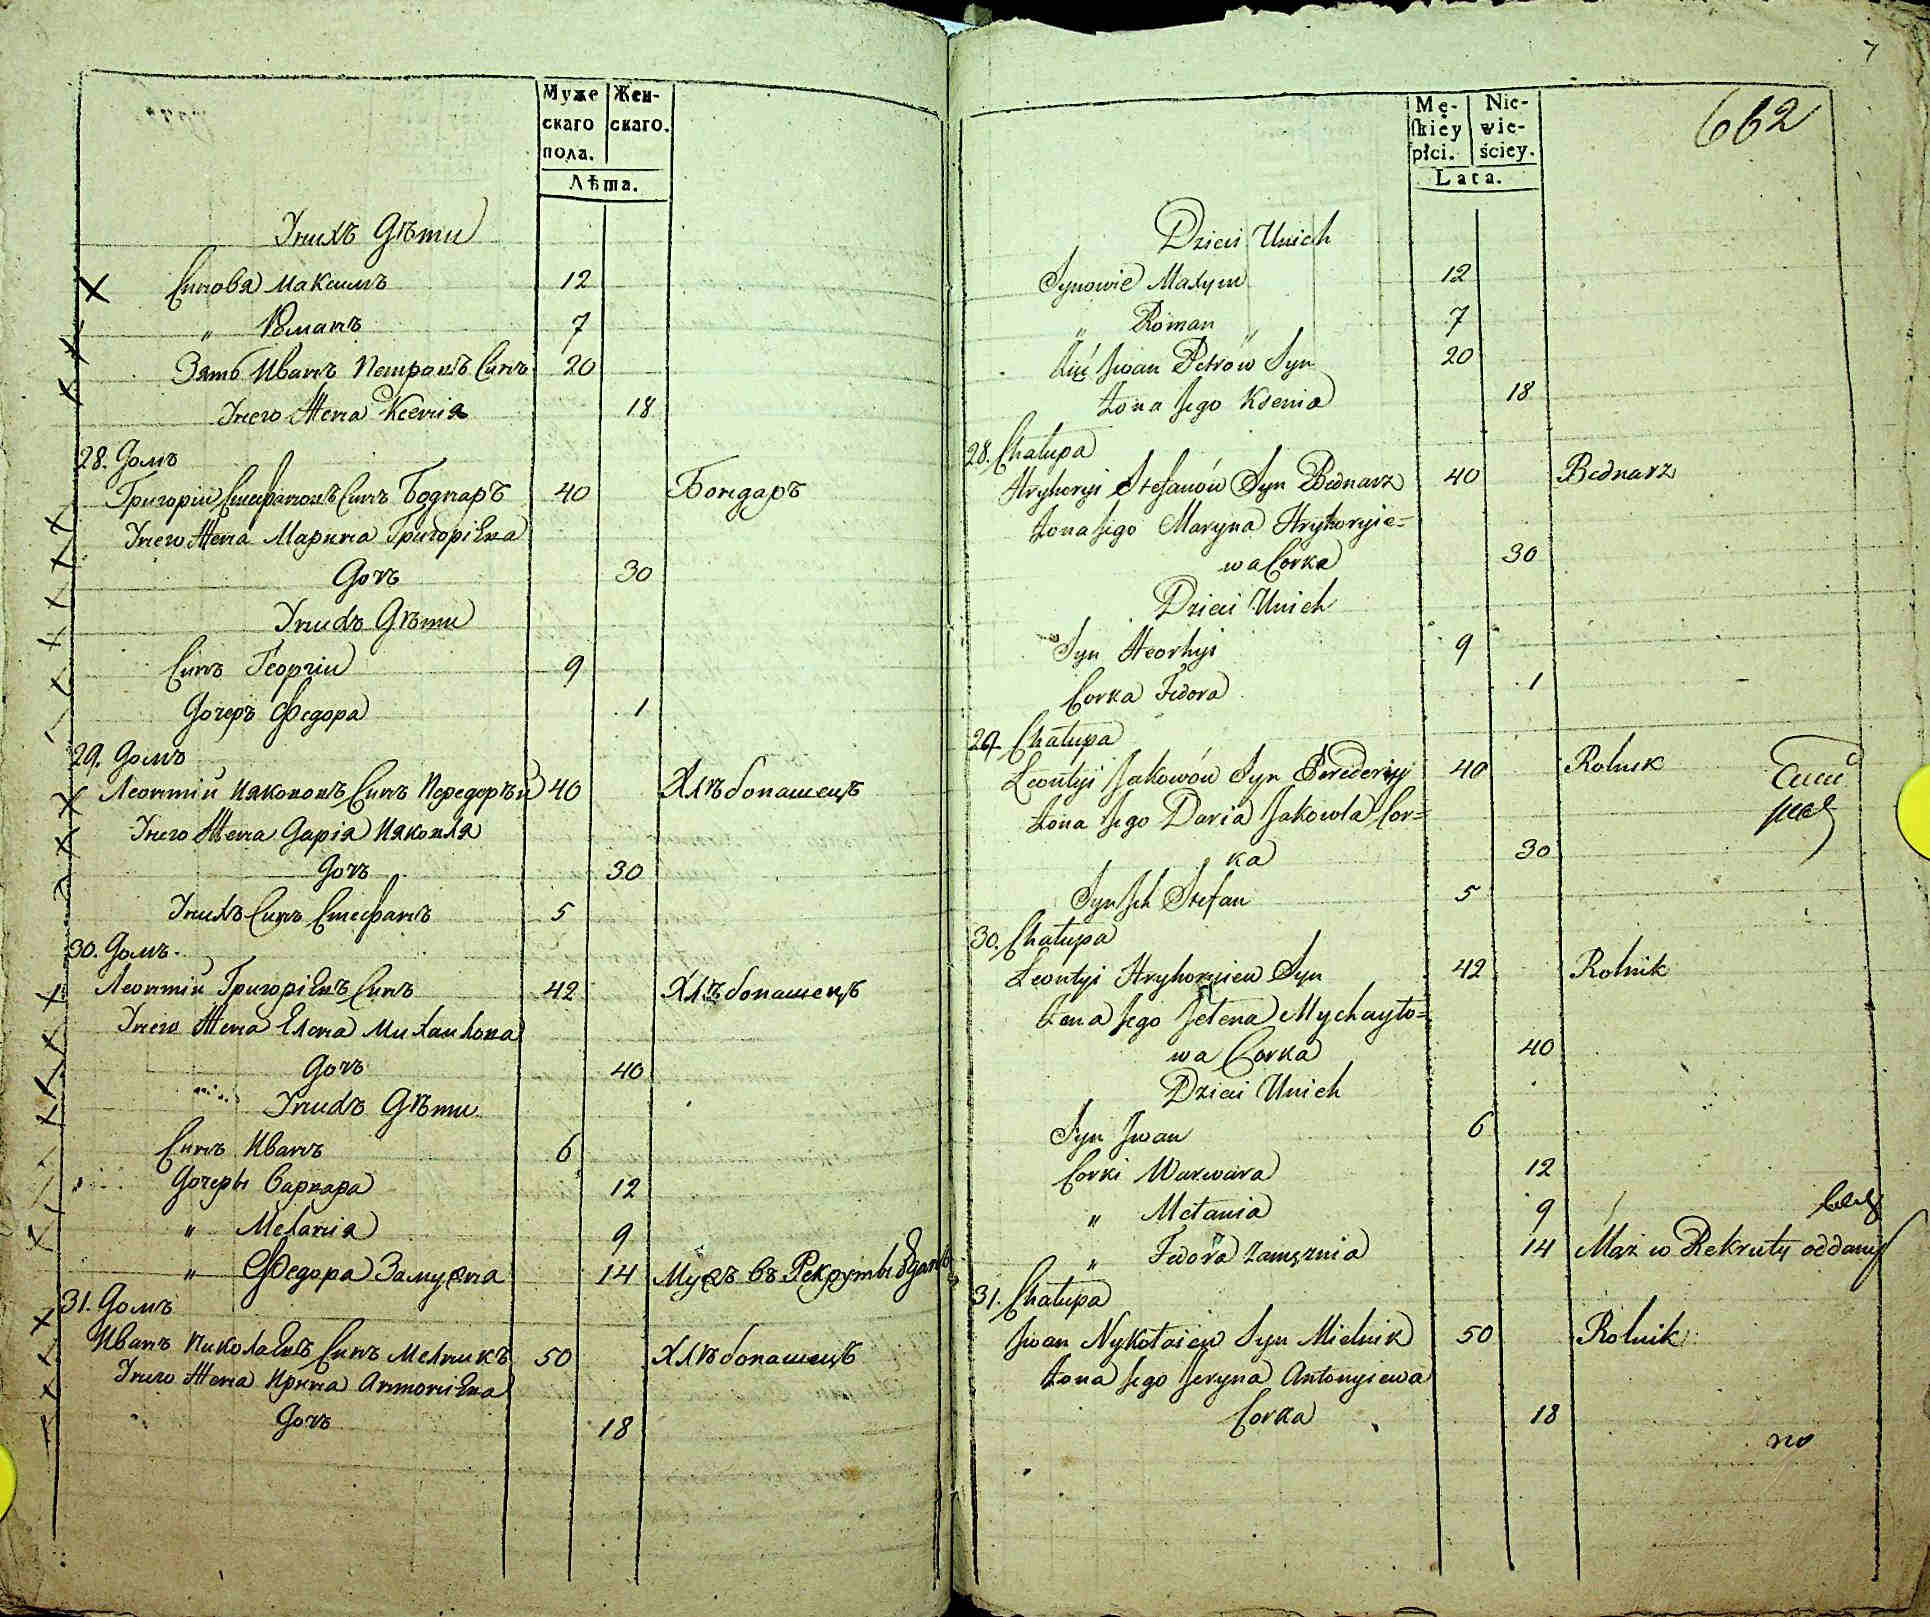 Муже
скаго
пола.
Жен-
скаго.
Лѣта.
Унихъ Дѣти
Синовя Максимъ 12
" Романъ 7
Зять Иванъ Петровъ Синъ 20
Унего Жена Ксения 18
28. Домъ
Григорій Стефановъ Синъ Боднаръ 40 Бондаръ
Унего Жена Марина Григоріева
Дочъ 30
Унихъ Дѣти
Синъ Георгій 9
Дочеръ Федора 1
29. Домъ
Леонтій Якововъ Синъ Передерѣй 40 Хлѣбопашецъ
Унего Жена Дарія Яковля
Дочъ 30
Унихъ Синъ Стефанъ 5
30. Домъ
Леонтій Григоріевъ Синъ 42 Хлѣбопашецъ
Унего Жена Елена Михайлова
Дочъ 40
Унихъ Дѣти
Синъ Иванъ 6
Дочеры Варвара 12
" Меланія 9
" Федора Замужна 14 Мужъ въ Рекруты
31. Домъ
Иванъ Николаевъ Синъ Мелникъ 50 Хлѣбопашецъ
Унего Жена Ирина Антоніева
Дочъ 18
7
662
Mę-
skiéy
płci.
Nie-
wie-
ściey.
Lata.
Dzieci Unich
Synowie Maxym 12
" Roman 7
Iwan Petrow Syn 20
Żona Jego Ksenia 18
28. Chałupa
Hryhoryi Stefanów Syn Bednarz 40 Bednarz
Żona Jego Maryna Hryhoryie=
wa Corka 30
Dzieci Unich
Syn Heorhyi 9
Corka Fedora 1
29. Chałupa
Leontyi Jakowów Syn Perederiy 40 Rolnik
Żona Jego Daria Jakowla Cor=
ka 30
Syn Ich Stefan 5
30. Chałupa
Leontyi Hryhoryiew Syn 42 Rolnik
Żona Jego Jełena Mychayło=
wa Corka 40
Dzieci Unich
Syn Jwan 6
Corki Warwara 12
" Mełania 9
" Fedora Zamężnia 14 Mąż w Rekruty oddany
31. Chałupa
Jwan Nykołaiew Syn Mielnik 50 Rolnik
Żona Jego Jeryna Antonyiewa
Corka 18